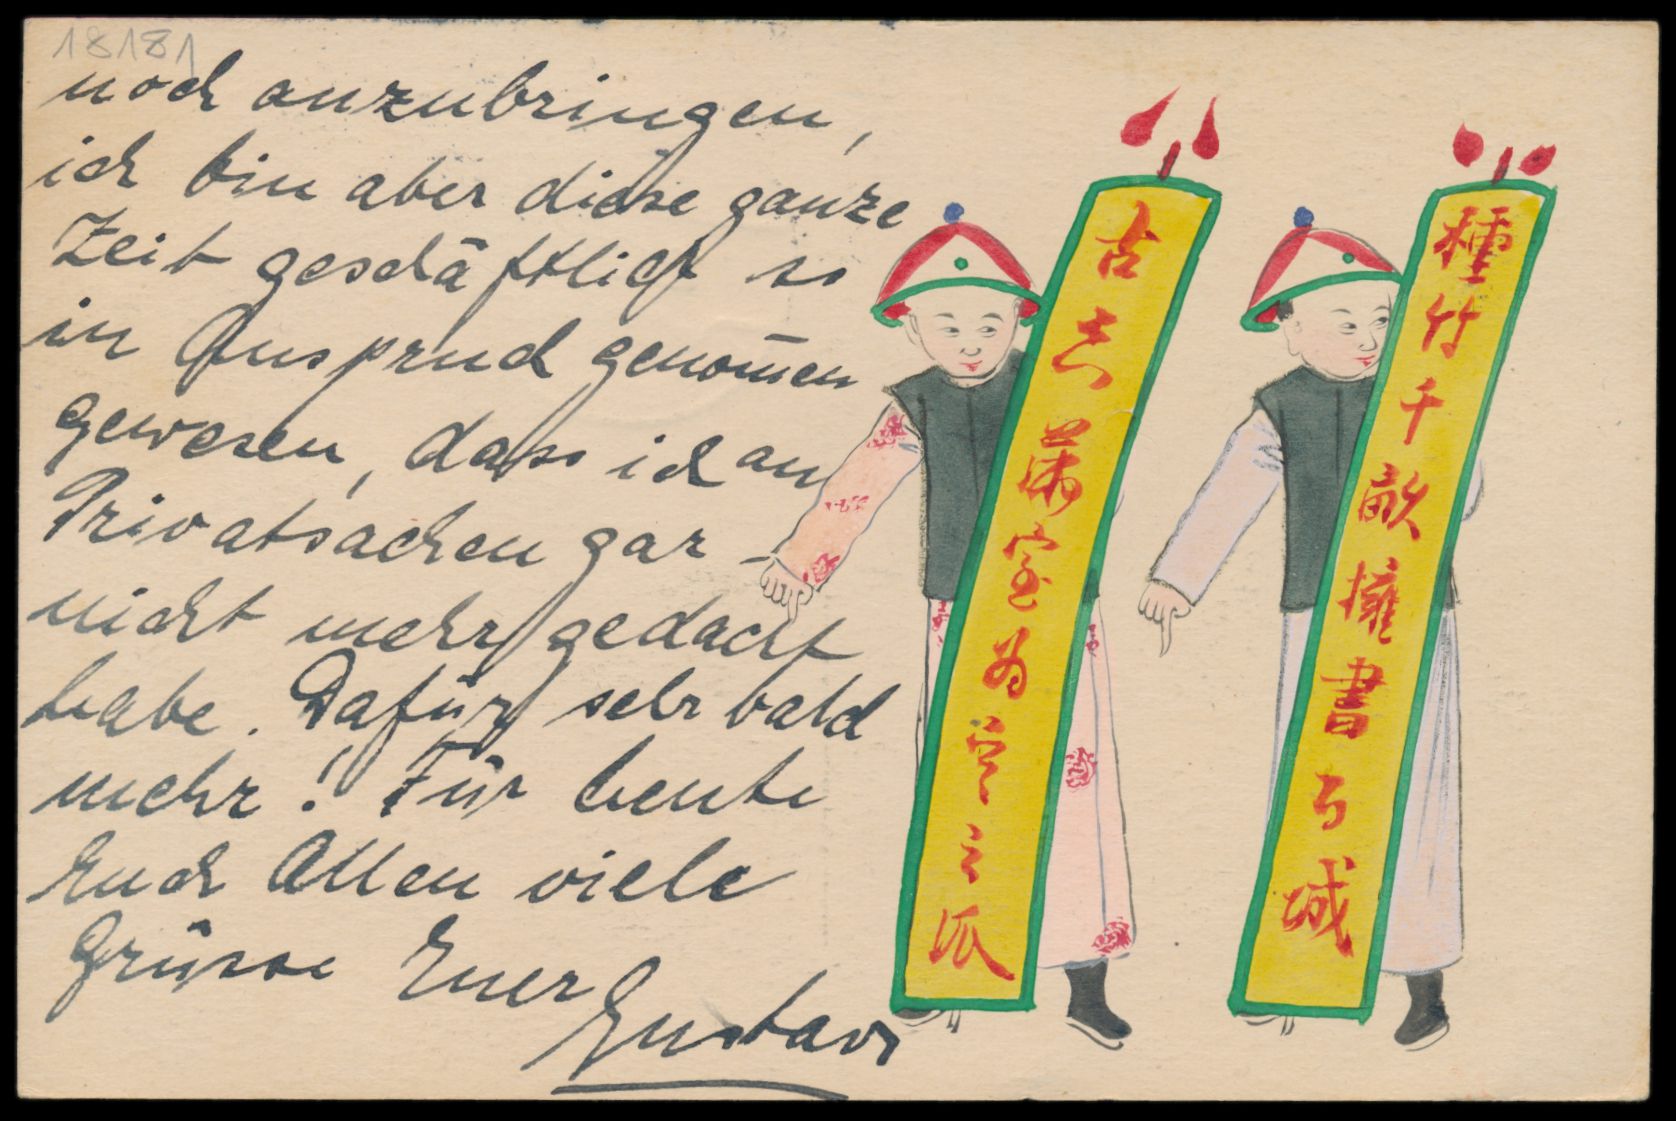 18181
noch anzubringen,
ich bin aber diese ganze
Zeit geschäftlich so
in Anspruch genom̄en
gewesen, dass ich an
Privatsachen gar
nicht mehr gedacht
habe. Dafür sehr bald
mehr! Für heute
Euch Allen viele
Grüsse Euer
Gustav
種竹千畝擁書百城